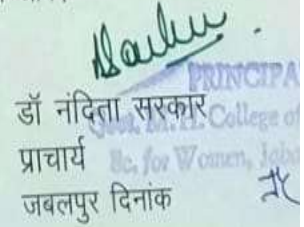 डॉ नंदिता सरकार
प्राचार्य
जबलपुर दिनांक
PRINCIPA
College of
Sc. for Women, Jab